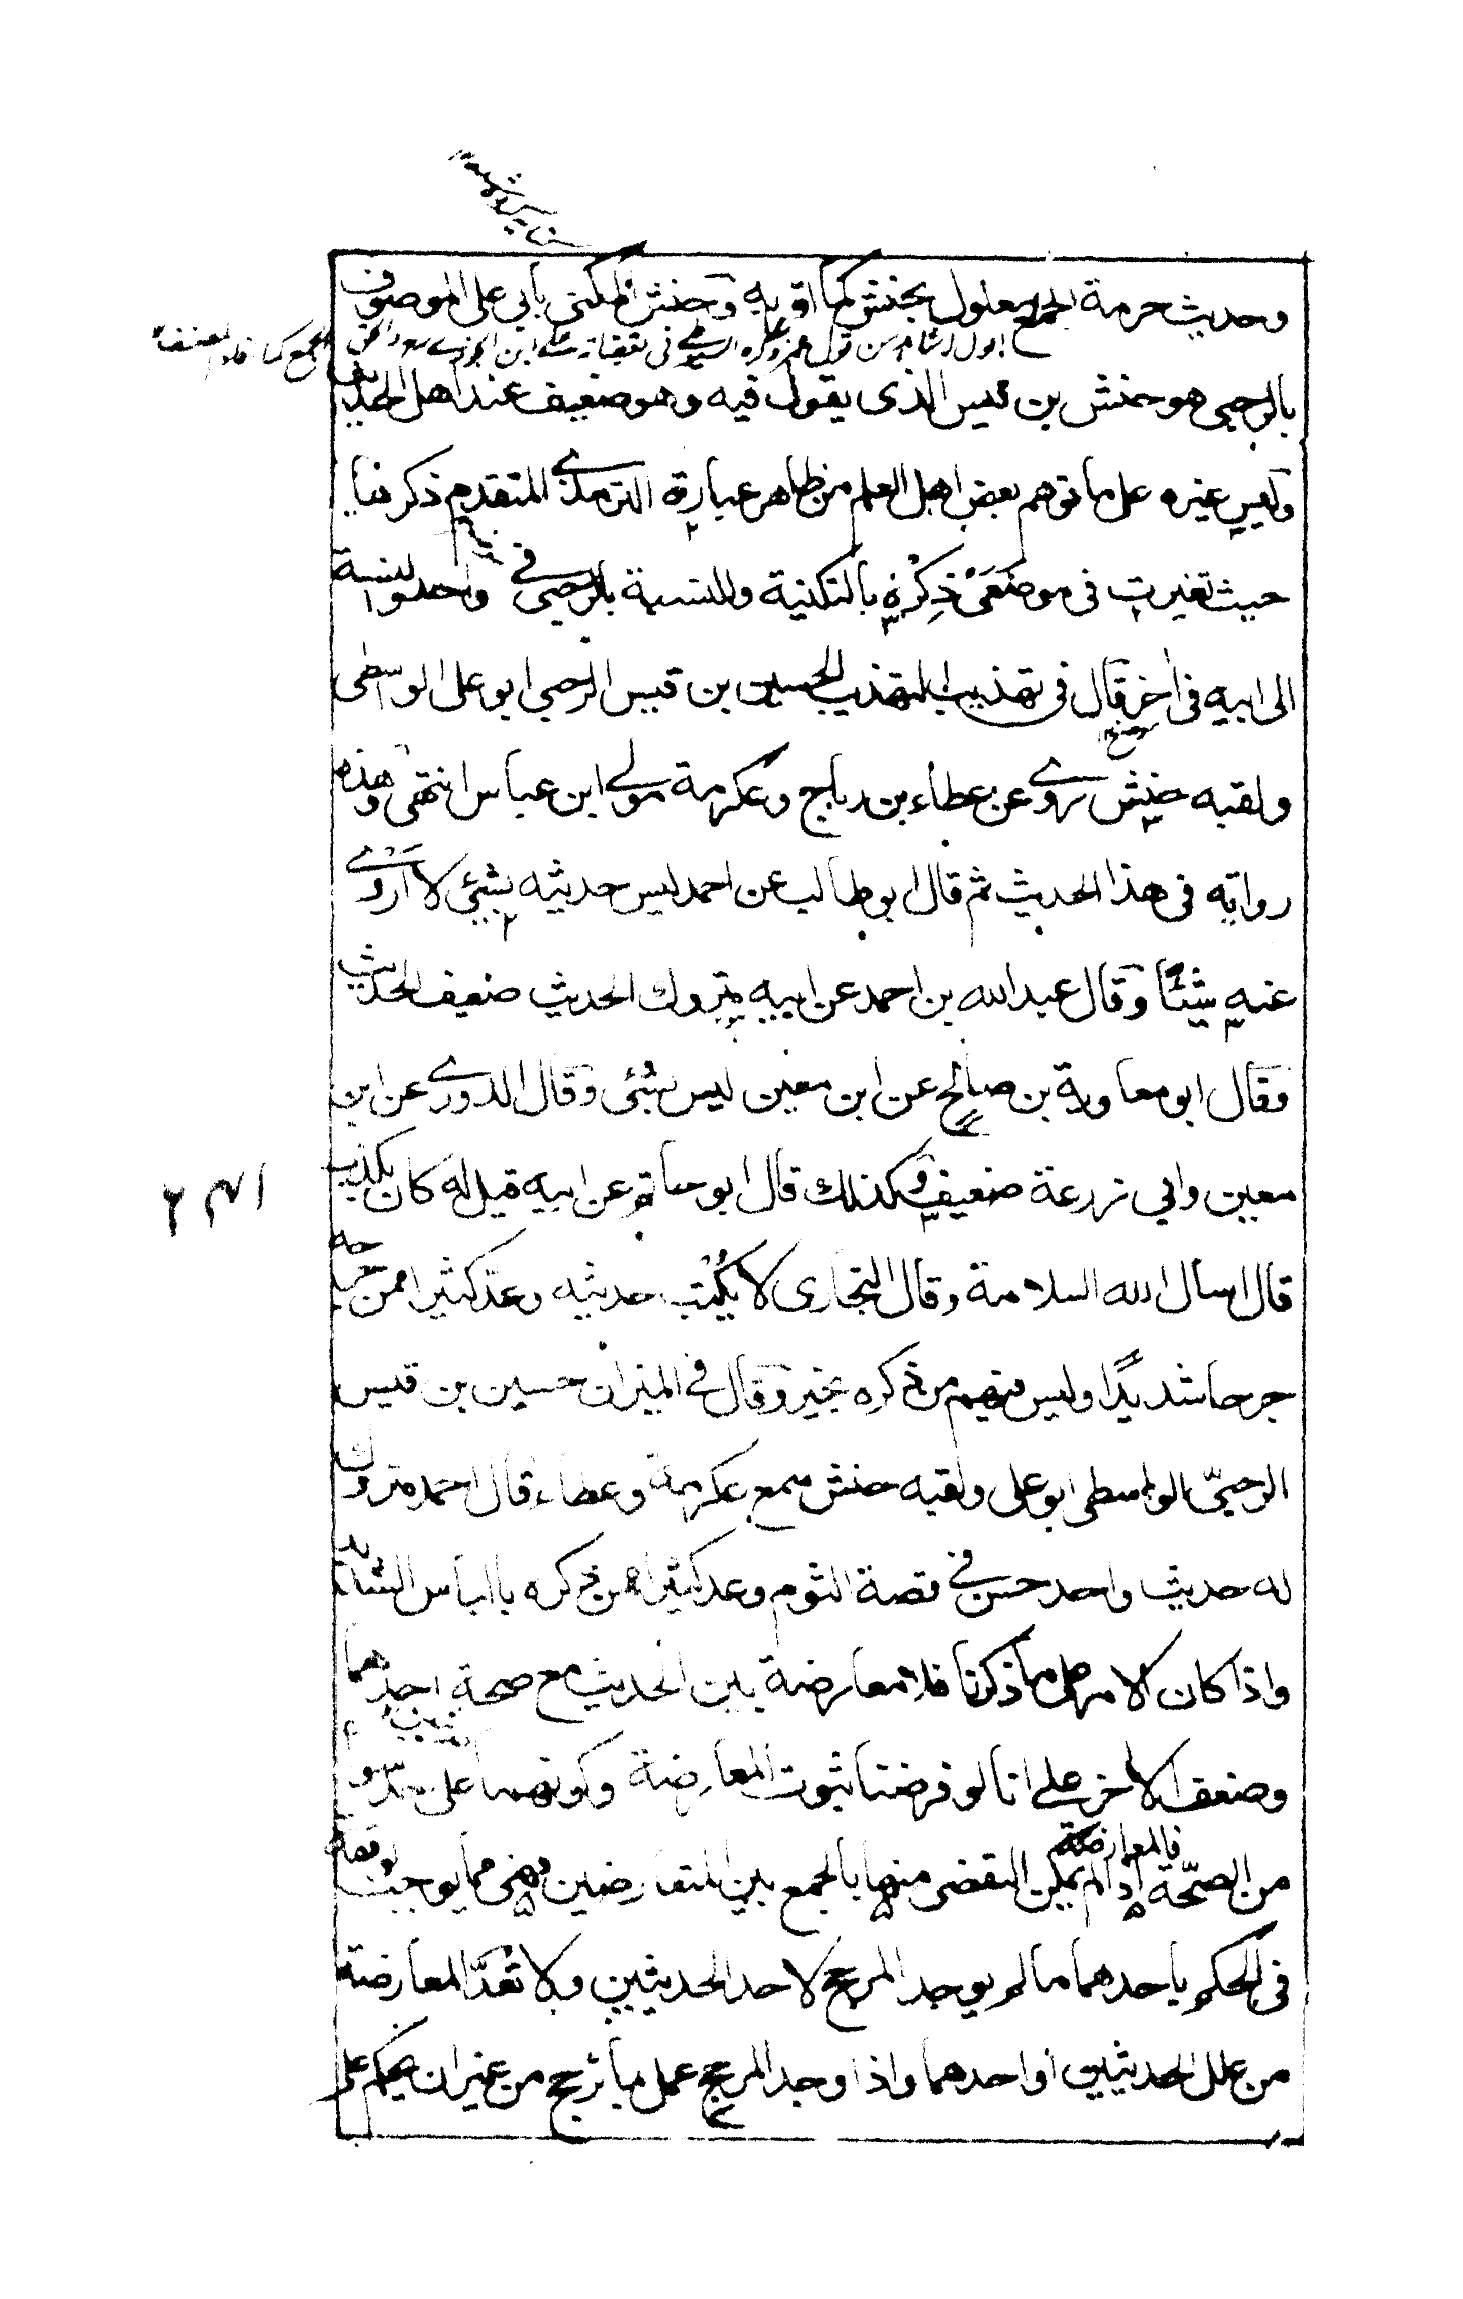 وحديث حرمة الجمع معلول بحنش كما اقر به وحنش المكنى بابي على الموصوف
بالرحبي هو حنش بن قيس الذى يقول فيه وهو ضعيف عند اهل الحديث
وليس غيره على ما توهم بعض اهل العلم من ظاهر عبارة الترمذي المتقدم ذكرنا
حيث تغيرت في موضعَىْ ذِكْرِهِ بالتكنية والنسبة بالرحبي في واحد والنسبة
الى ابيه في اخر قال في تهذيب التهذيب الحسين بن قيس الرحبي ابو على الواسطى
ولقبه حنش روى عن عطاء بن رباح وعكرمة مولى ابن عباس انتهى وهذه
روايته في هذا الحديث ثم قال ابو طالب عن احمد ليس حديثه بشيء لا اَرْوى
عنه شيئًا وقال عبد الله بن احمد عن ابيه متروك الحديث ضعيف الحديث
وقال ابو معاوية بن صالح عن ابن معين ليس بشئ وقال الدوري عن ابن
معين وابي زرعة ضعيف وكذلك قال ابو حاتم عن ابيه قيل له كان يكذب
٢ ١٣١
قال اسال الله السلامة وقال البخارى لا يُكْتب حديثه وعدّ كثيرا ممن جرحه
جرحا شديدًا وليس فيهم من ذكره بخير وقال في الميزان حسين بن قيس
الرحبىّ الواسطى ابو على ولقبه حنش سمع عكرمة وعطاء قال احمد متروك
له حديث واحد حسن في قصة الثوم وعد كثيرا ممن ذكره بالباس الشديد
واذا كان الامر على ما ذكرنا فلا معارضة بين الحديث مع صحة احدهما
وضعف الاخر على انا لو فرضنا ثبوت المعارضة وكونهما على حد سو
من الصحّة فالمعارضة اذا لم يمكن التقضى منها بالجمع بين المتعارضين فهى مما يوجب توقفا
في الحكم باحدهما ما لم يوجد المرجح لاحد الحديثين ولا تُعَدّ المعارضة
من علل الحديثين او احدهما واذا وجد المرجح عمل بما تُرجح من غير ان يحكم على